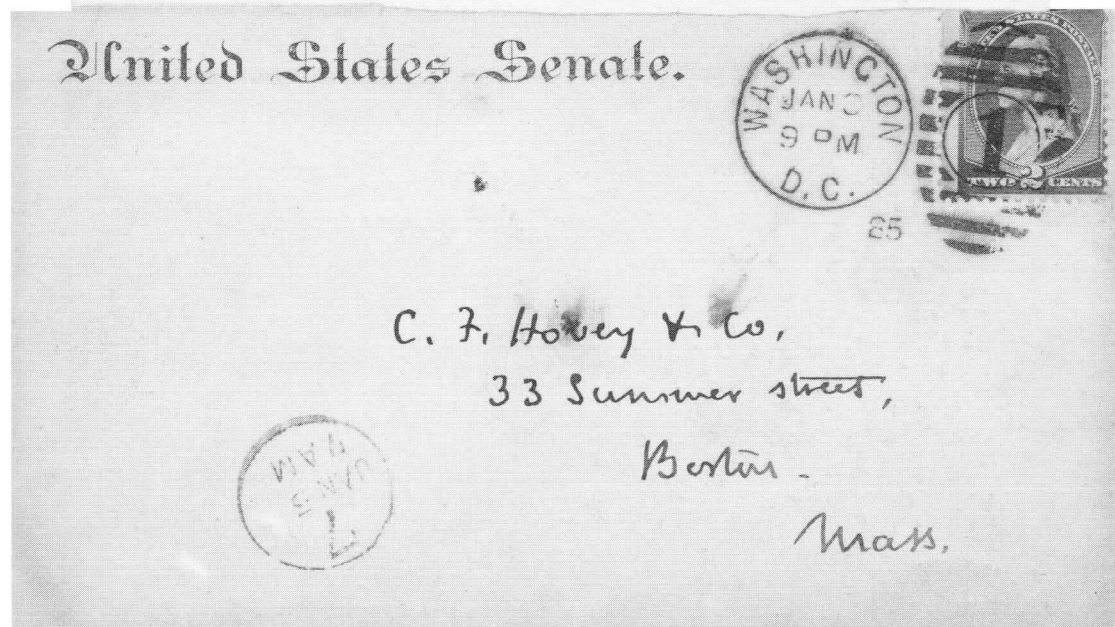 United States Senate.
WASHINGTON
JAN
9 PM
D.C.
85
UNITED STATES POSTAGE
TWO 2 CENTS
C. F. Hovey & Co,
33 Summer street,
Boston.
Mass.
JAN 3
AM